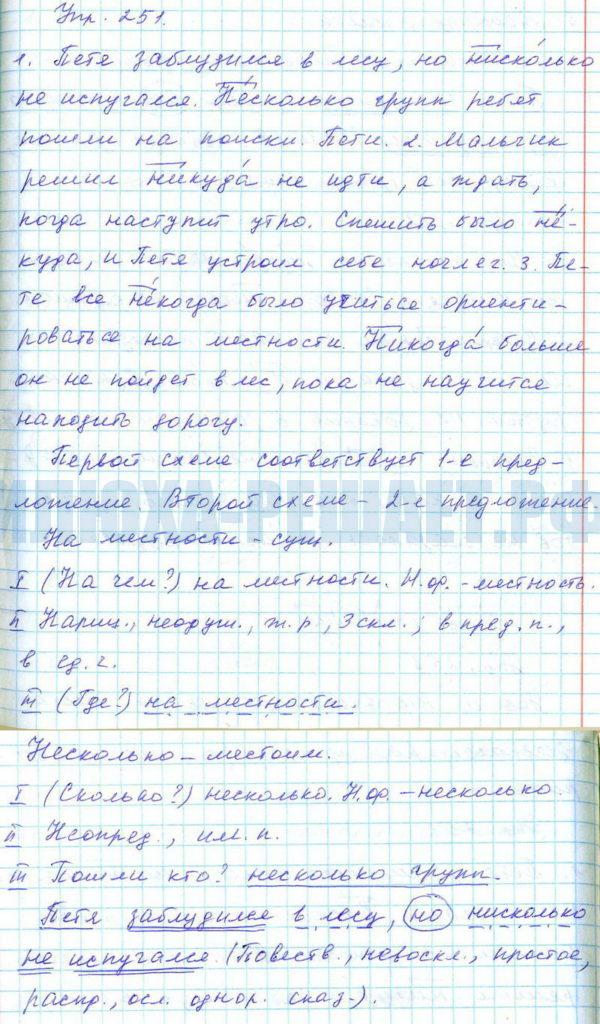 Упр. 251.
1. Петя заблудился в лесу, но нисколько
не испугался. Несколько групп ребят
пошли на поиски. Пети. 2. Мальчик
решил никуда не идти, а ждать,
когда наступит утро. Спешить было не-
куда, и Петя устроил себе ночлег. 3. Пе-
те все некогда было учиться ориенти-
роваться на местности. Никогда больше
он не пойдет в лес, пока не научится
находить дорогу.
Первой схеме соответствует 1-е пред-
ложение. Второй схеме – 2-е предложение.
ИЛЮХА-РЕШАЕТ.РФ
На местности – сущ.
I (На чем?) на местности. Н.ф. – местность.
II Нариц., неодуш., ж.р, 3 скл.; в пред. п.,
в ед. ч.
III (Где?) на местности.
Несколько – местоим.
I (Сколько?) несколько. Н.ф. – несколько.
II Неопред., им. п.
III Пошли кто? несколько групп.
Петя заблудился в лесу, но нисколько
не испугался. (Повеств., невоскл., простое,
распр., осл. однор. сказ.).